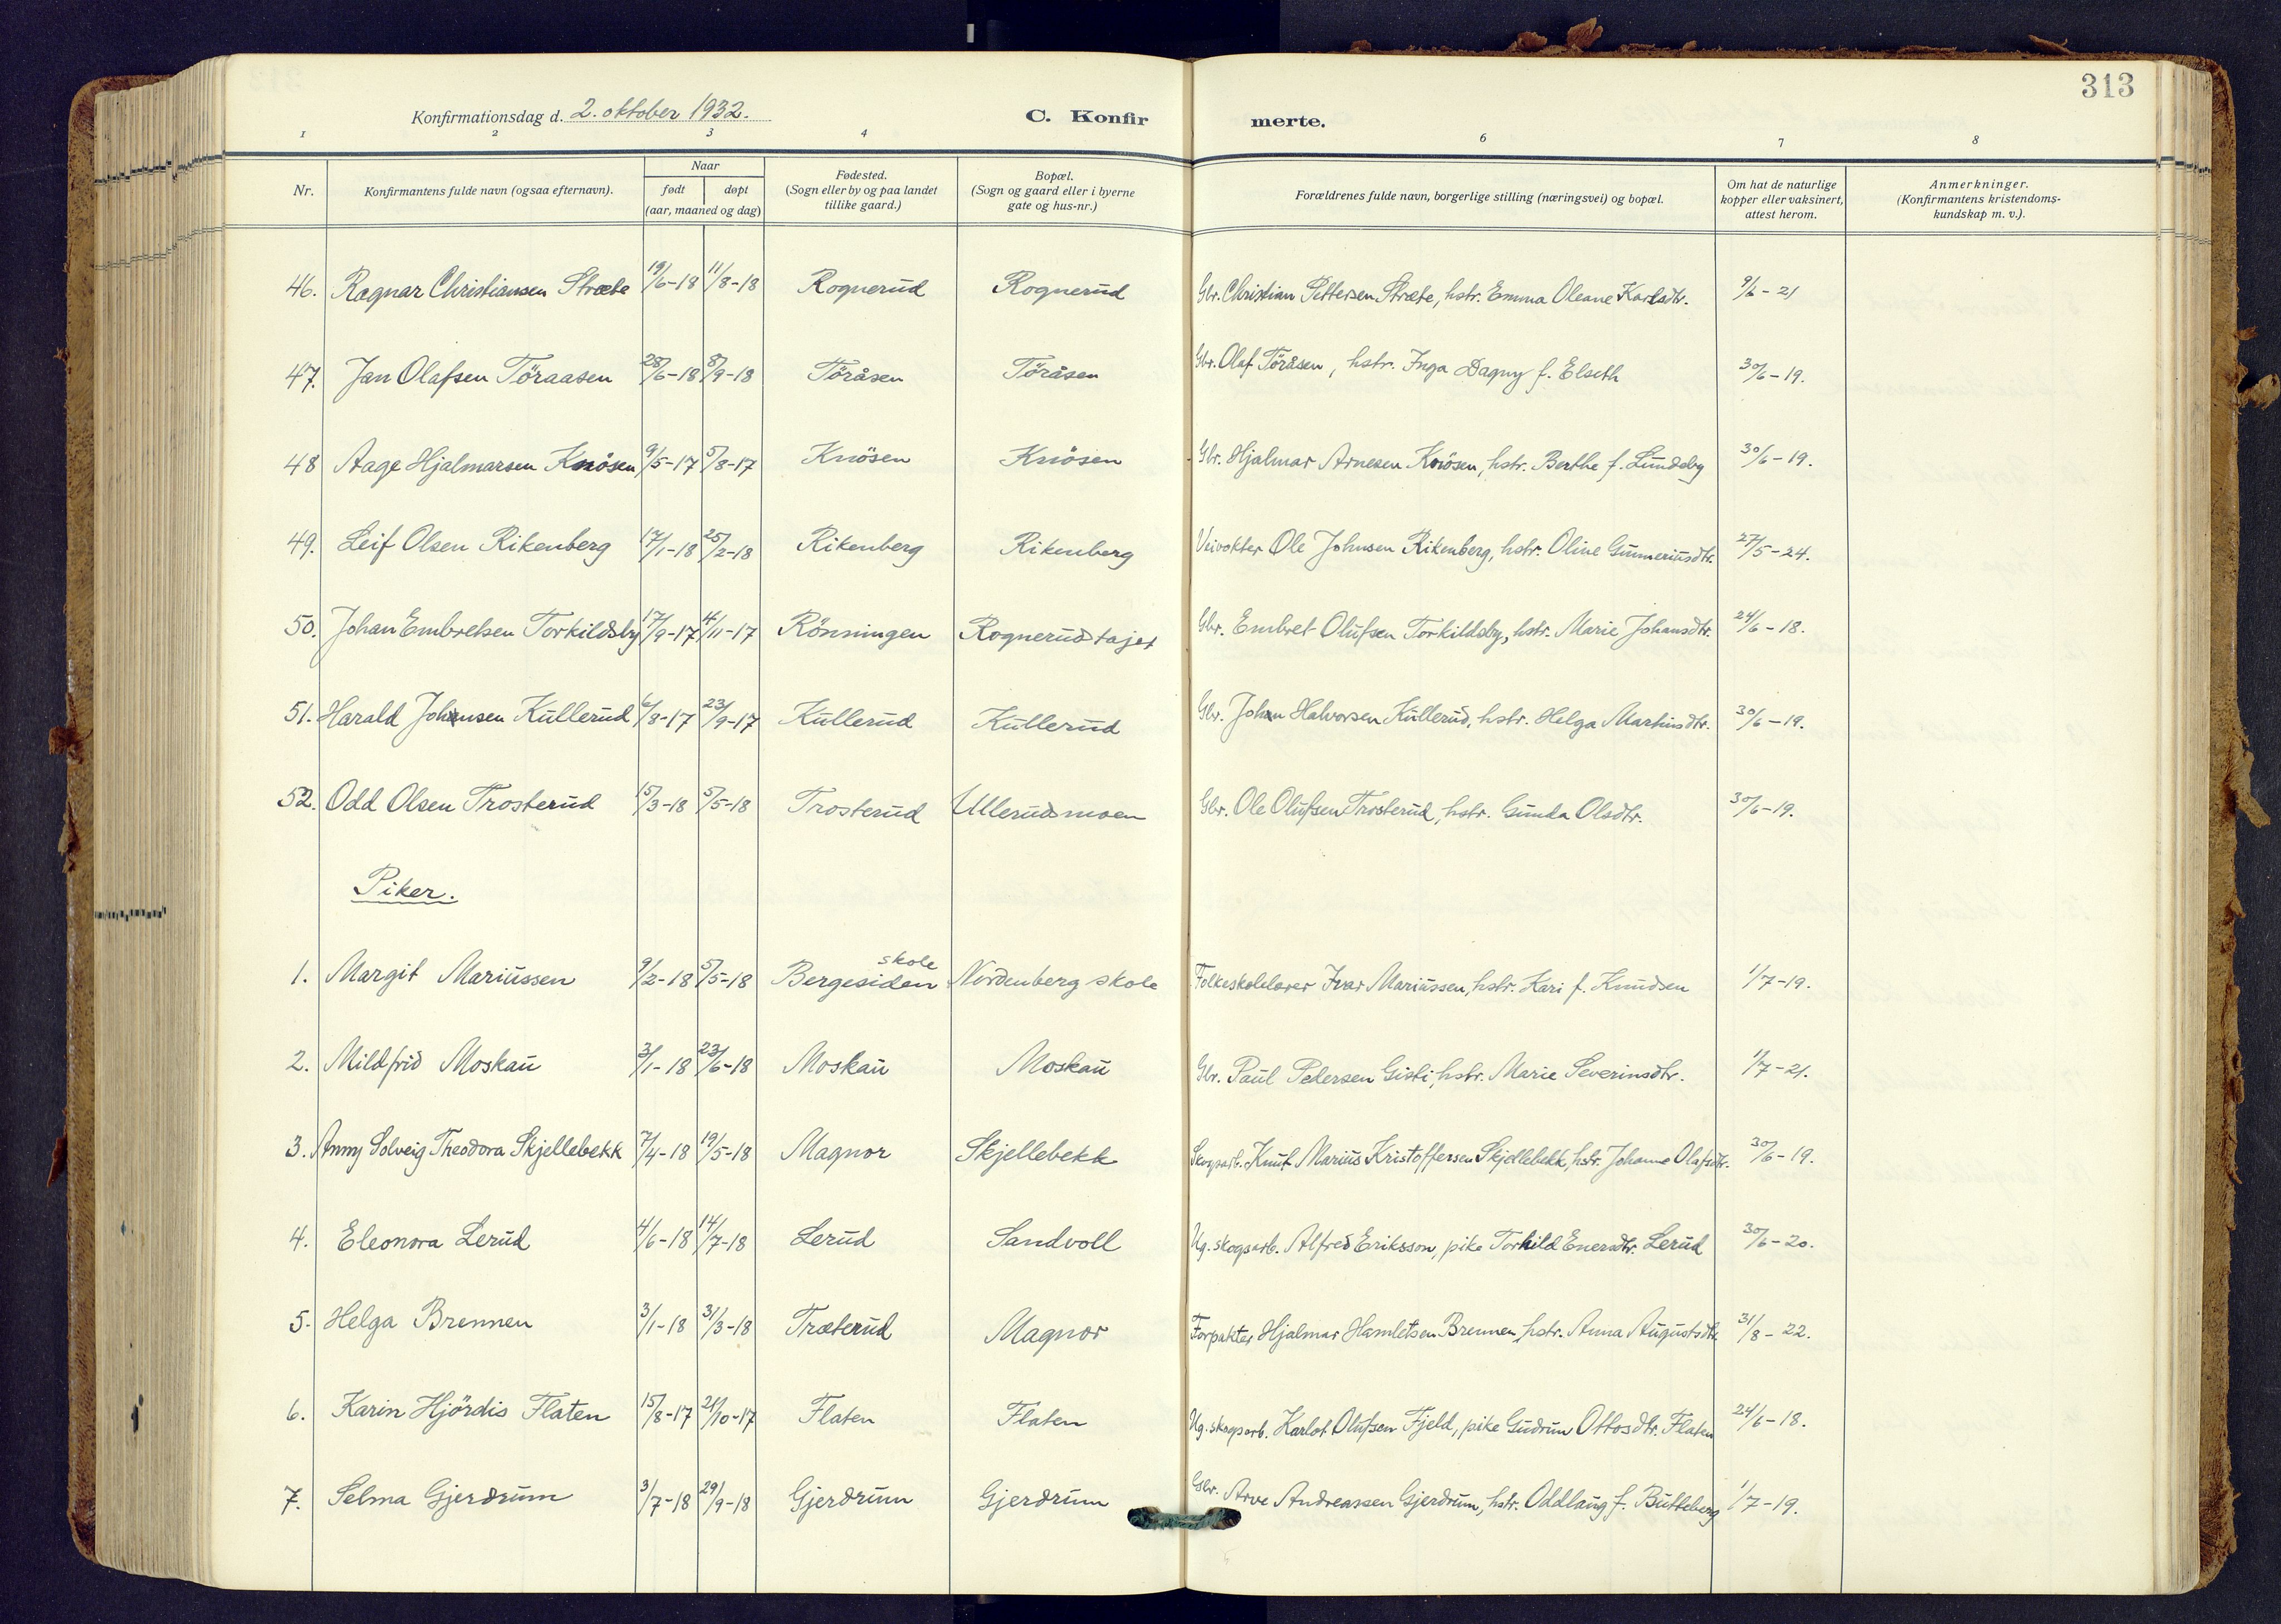 313
Konfirmationsdag d. 2. oktober 1932. C. Konfir merte.
1 2 3 4 6 7 8
Nr. Konfirmantens fulde navn (ogsaa efternavn). Naar født døpt (aar, maaned og dag) Fødested. (Sogn eller by og paa landet tillike gaard.) Bopæl. (Sogn og gaard eller i byerne gate og hus-nr.) Forældrenes fulde navn, borgerlige stilling (næringsvei) og bopæl. Om hat de naturlige kopper eller vaksinert, attest herom. Anmerkninger. (Konfirmantens kristendoms- kundskap m. v.).
46. Ragnar Christiansen Stræte 19/6-18 11/8-18 Rognerud Rognerud Gbr. Christian Pettersen Stræte, hstr. Emma Oleane Karlsdtr. 9/6-21
47. Jan Olafsen Töraasen 28/6-18 8/9-18 Töråsen Töråsen Gbr. Olaf Töråsen, hstr. Inga Dagny f. Elseth 30/6-19.
48 Aage Hjalmarsen Knösen 9/5-17 5/8-17 Knösen Knösen Gbr. Hjalmar Arnesen Knösen, hstr. Berthe f. Lundeby 30/6-19.
49. Leif Olsen Rikenberg 17/1-18 25/2-18 Rikenberg Rikenberg Veivokter Ole Johnsen Rikenberg, hstr. Oline Gunneriusdtr. 27/5-24.
50. Johan Embretsen Torkildsby 17/9-17 4/11-17 Rönningen Rognerudstajet Gbr. Embret Olufsen Torkildsby, hstr. Marie Johansdtr. 24/6-18.
51. Harald Johansen Kullerud 6/8-17 23/9-17 Kullerud Kullerud Gbr. Johan Halvorsen Kullerud, hstr. Helga Martinsdtr. 30/6-19.
52. Odd Olsen Trosterud 15/3-18 5/5-18 Trosterud Ullerudsmoen Gbr. Ole Olufsen Trosterud, hstr. Gunda Olsdtr. 30/6-19.
Piker.
1. Margit Mariussen 9/2-18 5/5-18 Bergesiden skole Nordenberg skole Folkeskolelærer Ivar Mariussen, hstr. Kari f. Knudsen 1/7-19.
2. Mildfrid Moskau 3/1-18 23/6-18 Moskau Moskau Gbr. Paul Pedersen Gisti, hstr. Marie Severinsdtr. 1/7-21.
3. Anny Solveig Theodora Skjellebekk 7/4-18 19/5-18 Magnor Skjellebekk Skogsarb. Knut Marius Kristoffersen Skjellebekk, hstr. Johanne Olafsdtr. 30/6-19.
4. Eleonora Lerud 4/6-18 14/7-18 Lerud Sandvoll Ug. skogsarb. Alfred Eriksson, pike Torhild Enersdtr. Lerud 30/6-20.
5. Helga Brennen 3/1-18 31/3-18 Træterud Magnor Forpakter Hjalmar Hamletsen Brennen, hstr. Anna Augustsdtr. 31/8-22.
6. Karin Hjördis Flaten 15/8-17 21/10-17 Flaten Flaten Ug. skogsarb. Karlot Olufsen Fjeld, pike Gudrun Ottosdtr. Flaten 24/6-18.
7. Selma Gjerdrum 3/7-18 29/9-18 Gjerdrum Gjerdrum Gbr. Arve Andreassen Gjerdrum, hstr. Oddlaug f. Butteberg 1/7-19.